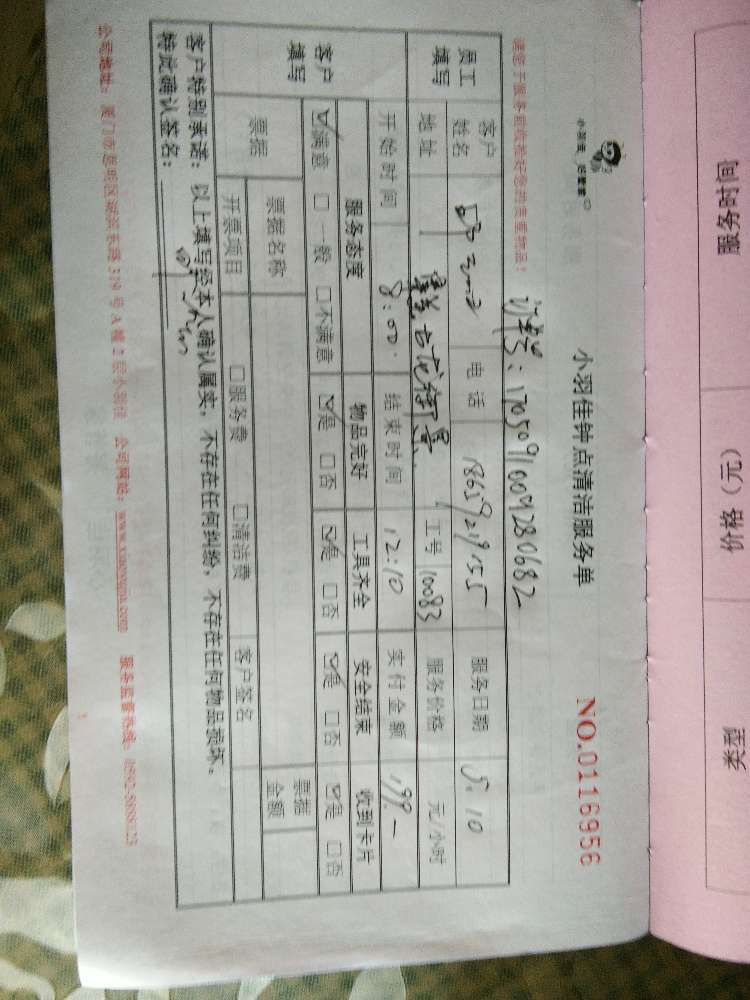 小羽佳钟点清洁服务单
NO.0116956
订单号：1705091009280682
请您于服务前收捡好您的贵重物品！
员工填写
客户姓名
电话 18659219155
服务日期 5.10
地址
古龙御景
工号 10083
服务价格 元/小时
开始时间 8:00
结束时间 12:10
实付金额 199.-
客户填写
服务态度 物品完好 工具齐全 安全结束 收到卡片
☑满意 □一般 □不满意 ☑是 □否 ☑是 □否 ☑是 □否 ☑是 □否
票据 票据名称 票据金额
开票项目 □服务费 □清洁费 客户签名
客户特别承诺：以上填写经本人确认属实，不存在任何纠纷，不存在任何物品损坏。
特此确认签名：
公司网站：www.xiaoyujia.com
服务监督热线：
服务时间 价格（元） 类型